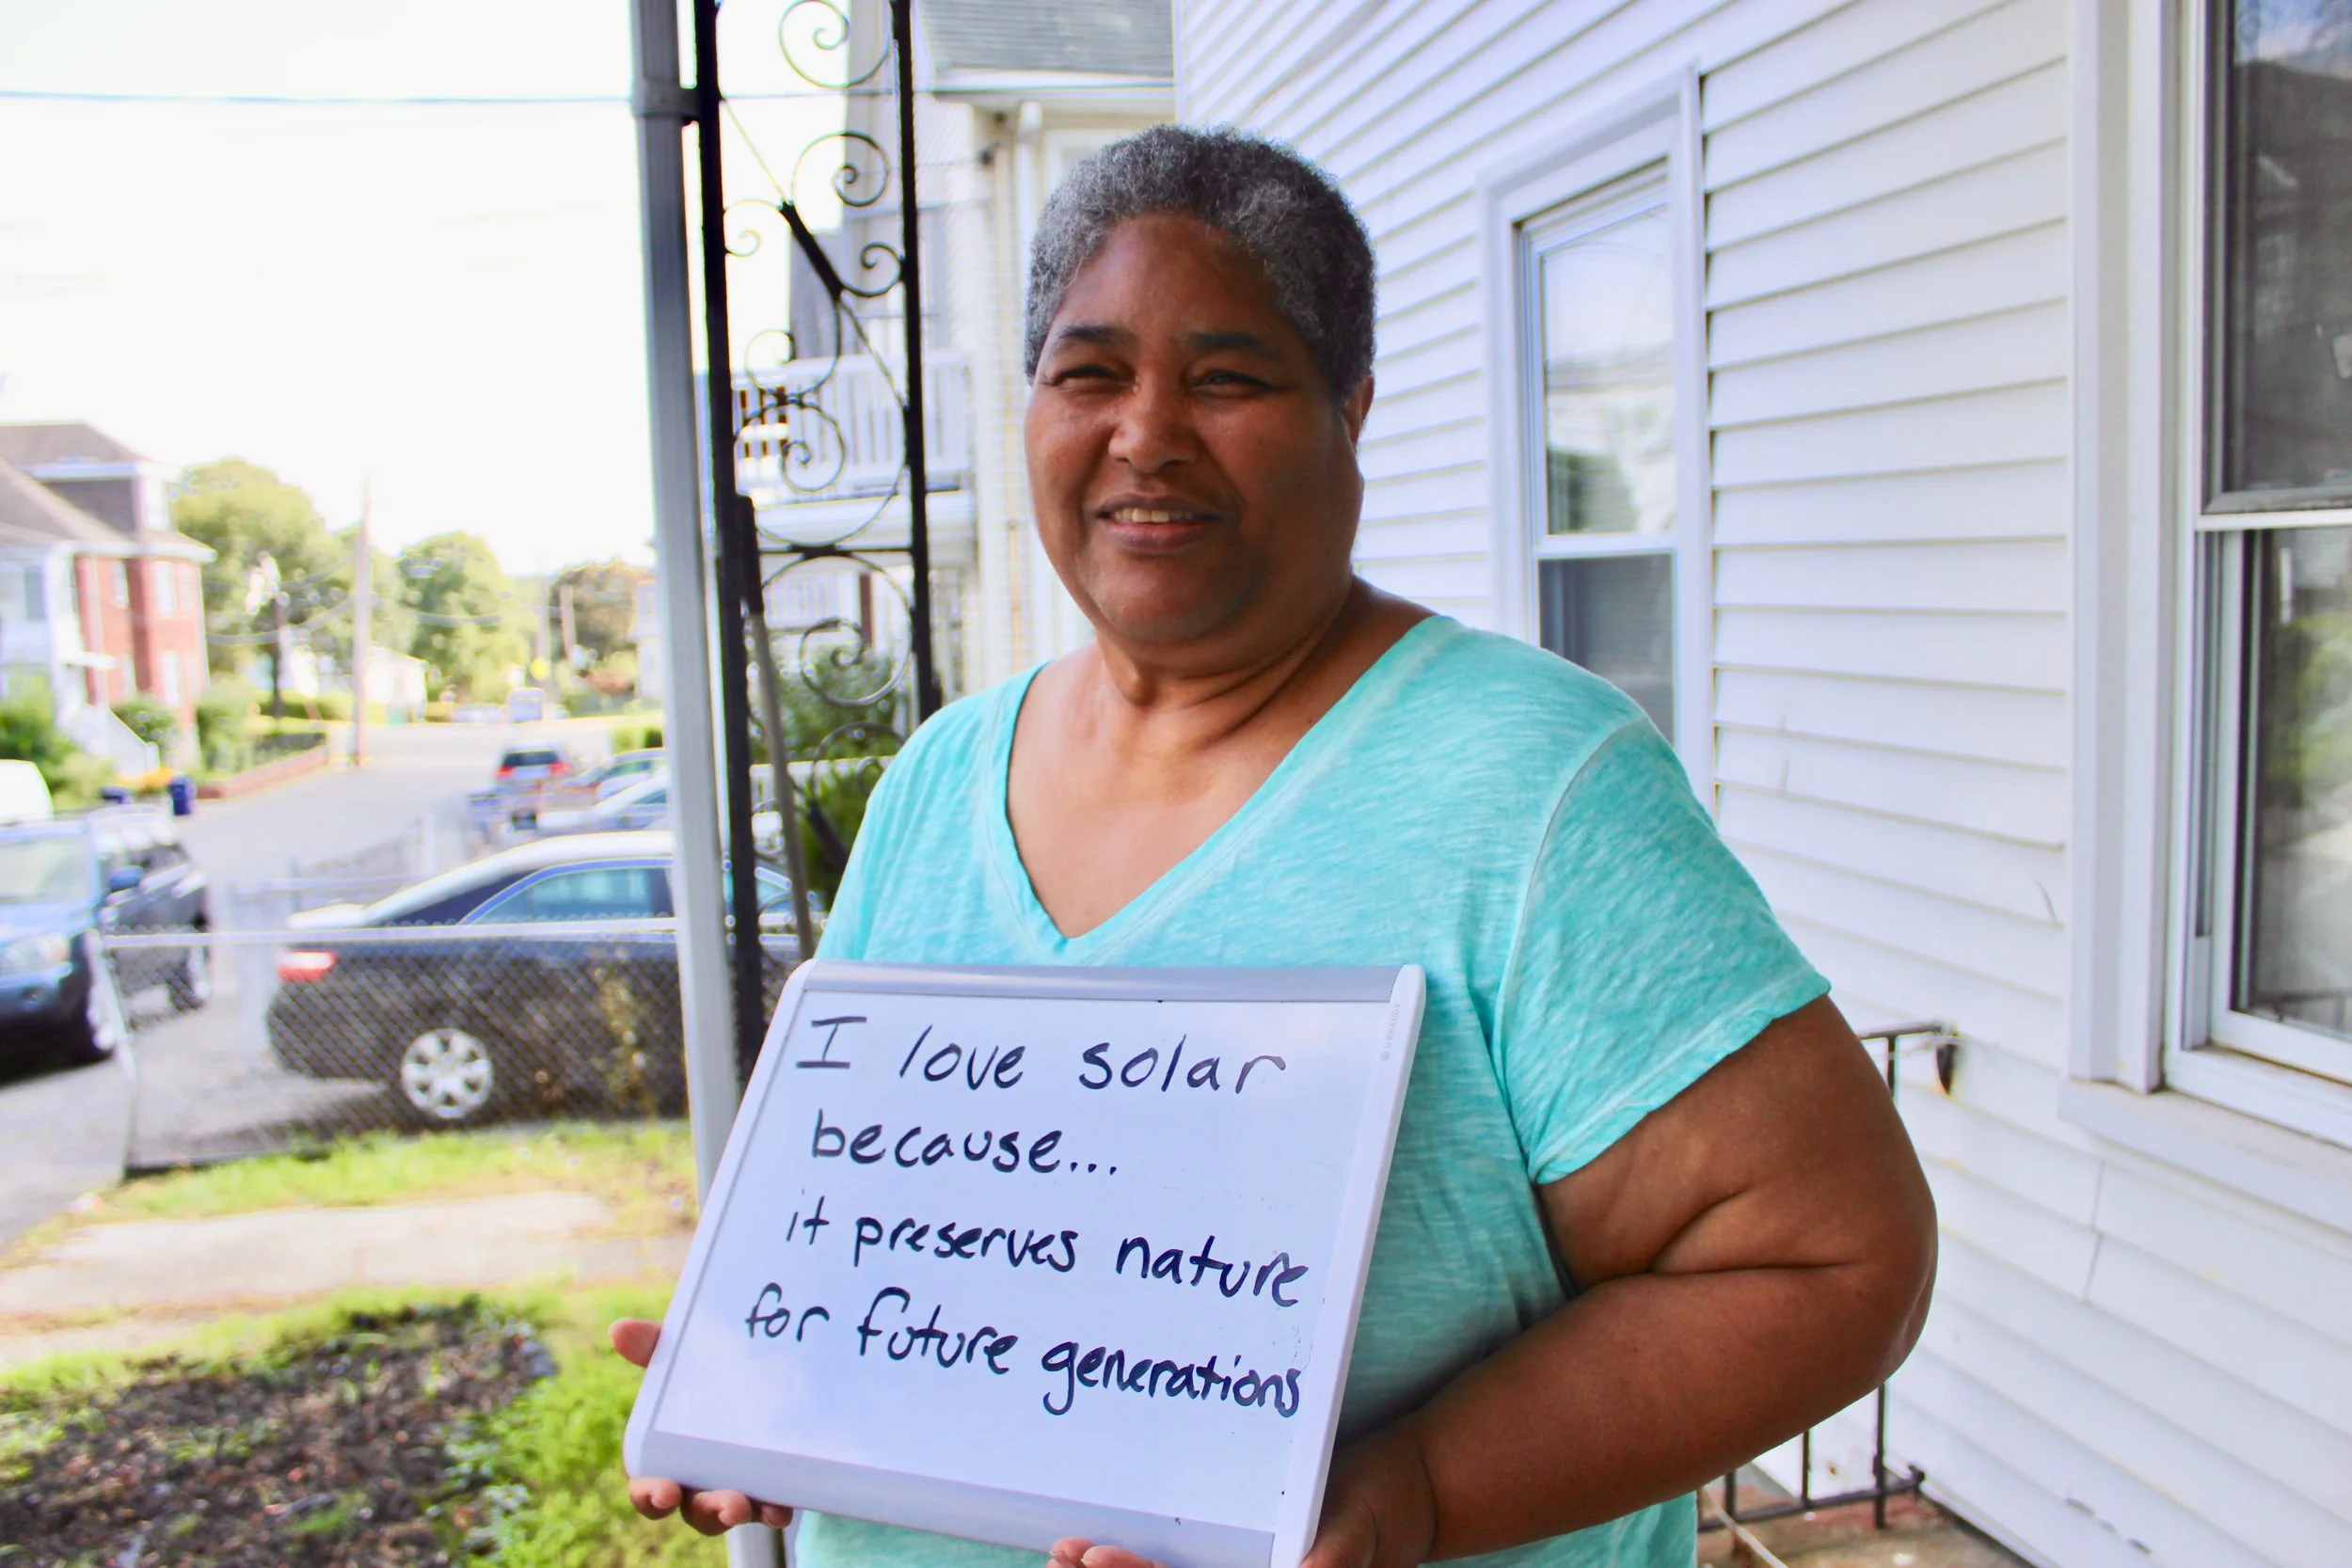 I love solar
because...
it preserves nature
for future generations